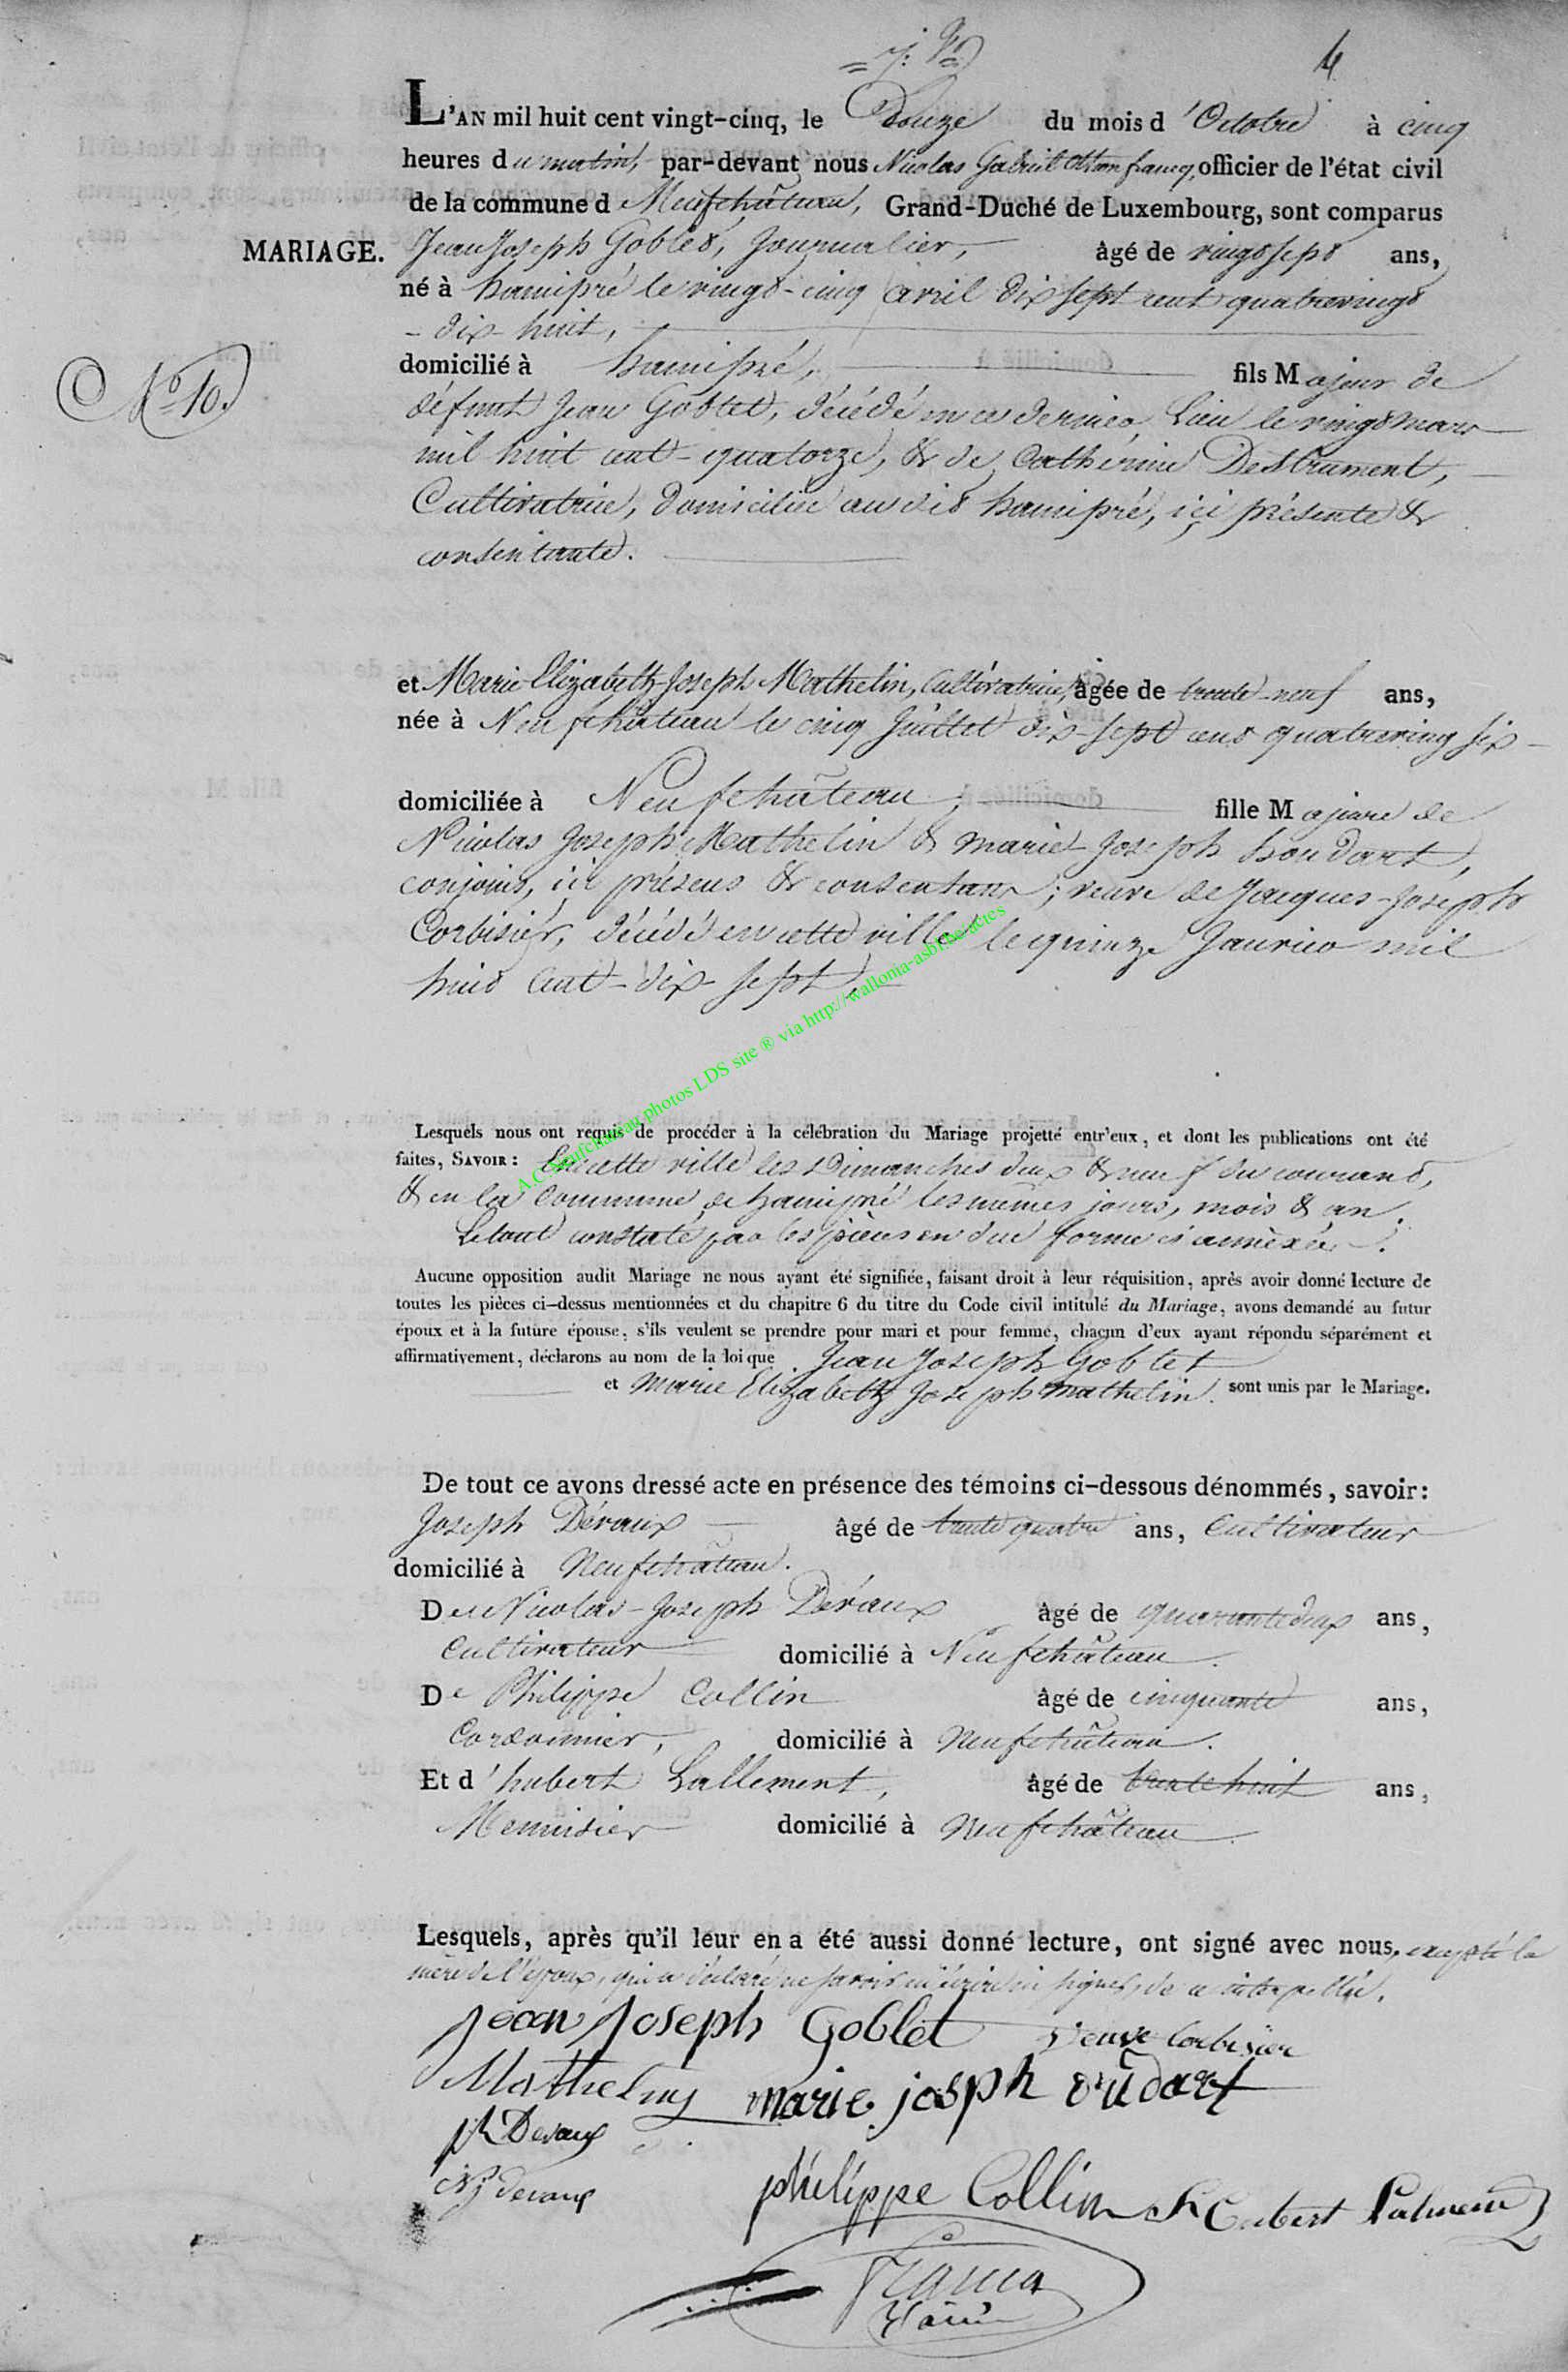 4
L'AN mil huit cent vingt-cinq, le Douze du mois d'Octobre à cinq
heures du matin, par-devant nous Nicolas Gabriel francq, officier de l'état civil
de la commune d Neufchâteau, Grand-Duché de Luxembourg, sont comparus
MARIAGE.
Jean Joseph Goblet, Journalier, âgé de vingt sept ans,
né à hamipré le vingt-cinq avril dix sept cent quatrevingt
- dix-huit,
domicilié à hamipré, fils Majeur de
N.o 10.
défunt Jean Goblet, décédé en ce dernier Lieu le vingt mars
mil huit cent-quatorze, & de Catherine Destrument,
Cultivatrice, domiciliée audit hamipré, ici présente &
consentante.
et Marie Elizabeth Joseph Mathelin, Cultivatrice, âgée de trente-neuf ans,
née à Neufchâteau le cinq Juillet dix-sept cent quatreving six -
domiciliée à Neufchâteau, fille Majeure de
Nicolas Joseph Mathelin & marie Joseph houdart,
conjoins, ici présens & consentans; veuve de Jacques-Joseph
Corbisier, décédé en cette ville le quinze Janvier mil
huit Cent-dix-sept,
A.C. Neufchateau photos LDS site ® via http://wallonia-asbl.be/actes
Lesquels nous ont requis de procéder à la célébration du Mariage projetté entr'eux, et dont les publications ont été
faites, SAVOIR : En cette ville les Dimanches deux & neuf du courant,
& en la Commune de hamipré les mêmes jours, mois & an.
Le tout constaté par les pièces en due forme ci annexées.
Aucune opposition audit Mariage ne nous ayant été signifiée, faisant droit à leur réquisition, après avoir donné lecture de
toutes les pièces ci-dessus mentionnées et du chapitre 6 du titre du Code civil intitulé du Mariage, avons demandé au futur
époux et à la future épouse, s'ils veulent se prendre pour mari et pour femme, chacun d'eux ayant répondu séparément et
affirmativement, déclarons au nom de la loi que Jean Joseph Goblet
et Marie Elizabeth Joseph Mathelin sont unis par le Mariage.
De tout ce avons dressé acte en présence des témoins ci-dessous dénommés, savoir:
Joseph Dévaux âgé de trente quatre ans, Cultivateur
domicilié à Neufchâteau.
De Nicolas-Joseph Dévaux âgé de quarante deux ans,
Cultivateur domicilié à Neufchâteau.
De Philippe Collin âgé de cinquante ans,
Cordonnier, domicilié à Neufchâteau.
Et d'hubert Lallement, âgé de trente huit ans,
Menuisier domicilié à Neufchâteau.
Lesquels, après qu'il leur en a été aussi donné lecture, ont signé avec nous, excepté la
mère de l'époux, qui a déclaré ne savoir ni écrire ni signer, de ce interpellée.
jean joseph Goblet veuve Corbisier
Mathelin marie josph oudart
Devaux
NJ devaux
philippe Collin hubert Lalment